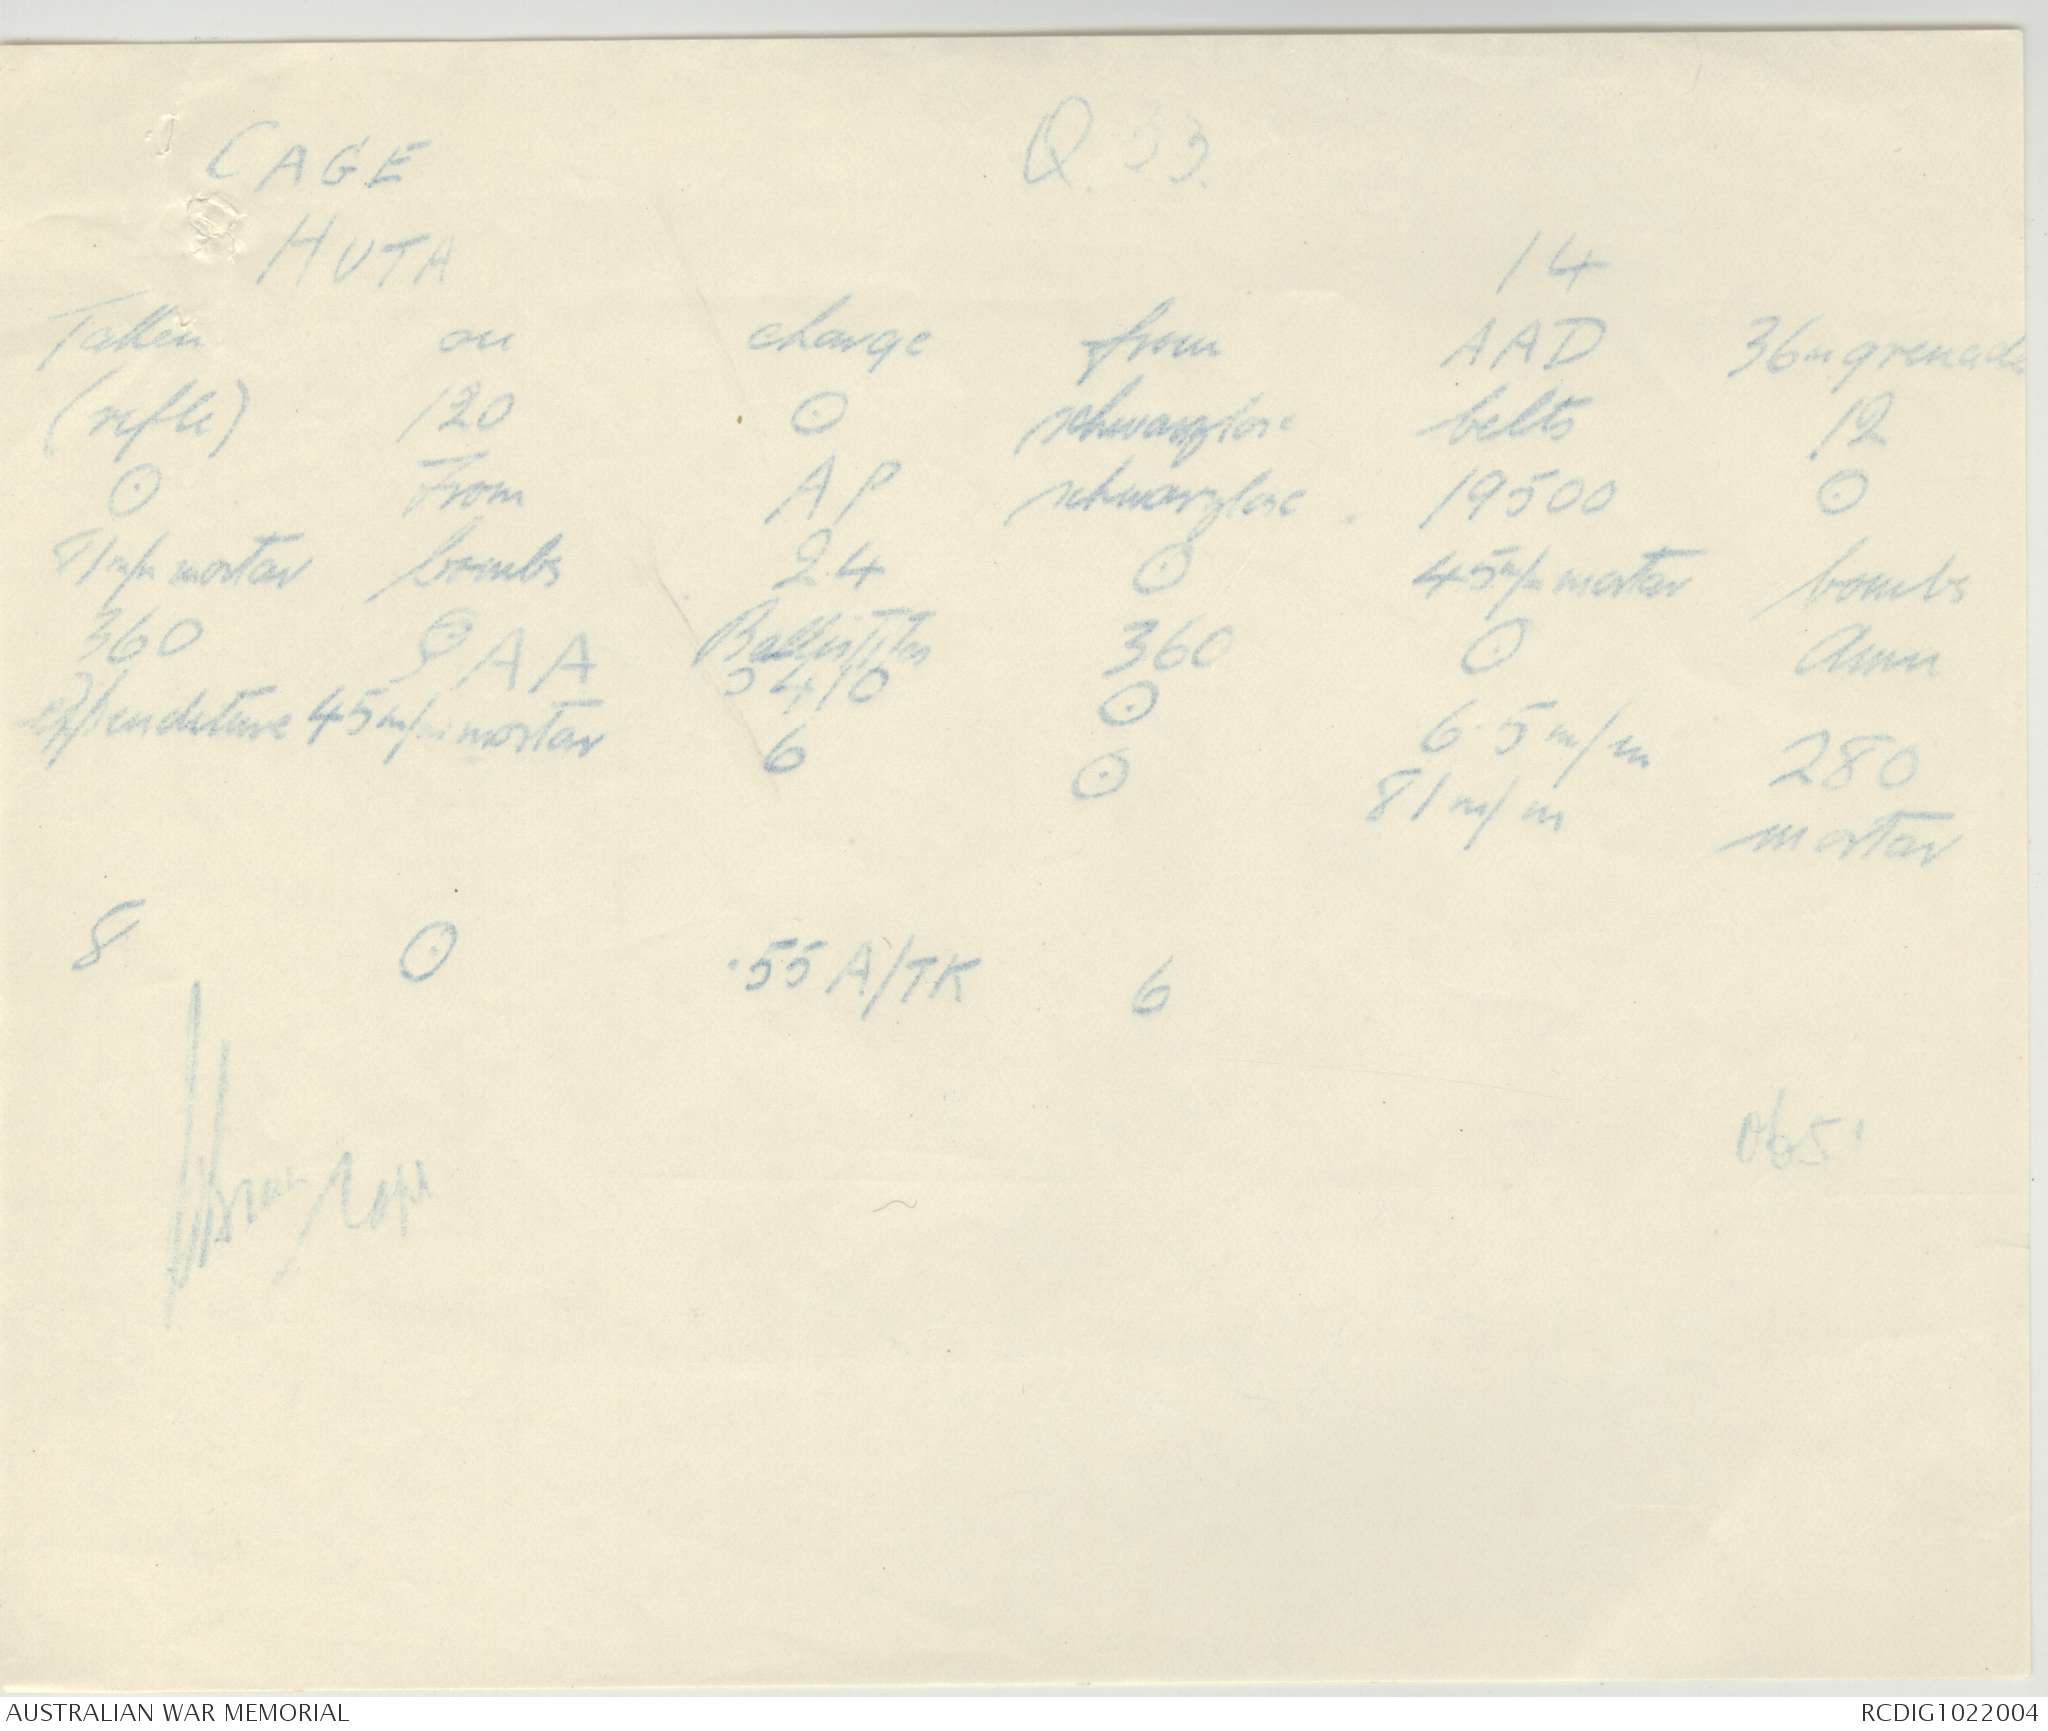 CAGE Q. 33.
HUTA 14
Taken on charge from AAD 36m grenade
(rifle) 120 ⊙ schwarzlose belts 12
⊙ From AP schwarzlose 19500 ⊙
81 m/m mortar bombs 24 ⊙ 45 m/m mortar bombs
360 ⊙ AA Ballistites 360 ⊙ Amn
expenditure 45 m/m mortar 3410 ⊙ 6.5 m/m 280
6 ⊙ 81 m/m mortar
8 ⊙ .55 A/TK 6
0651
AUSTRALIAN WAR MEMORIAL RCDIG1022004